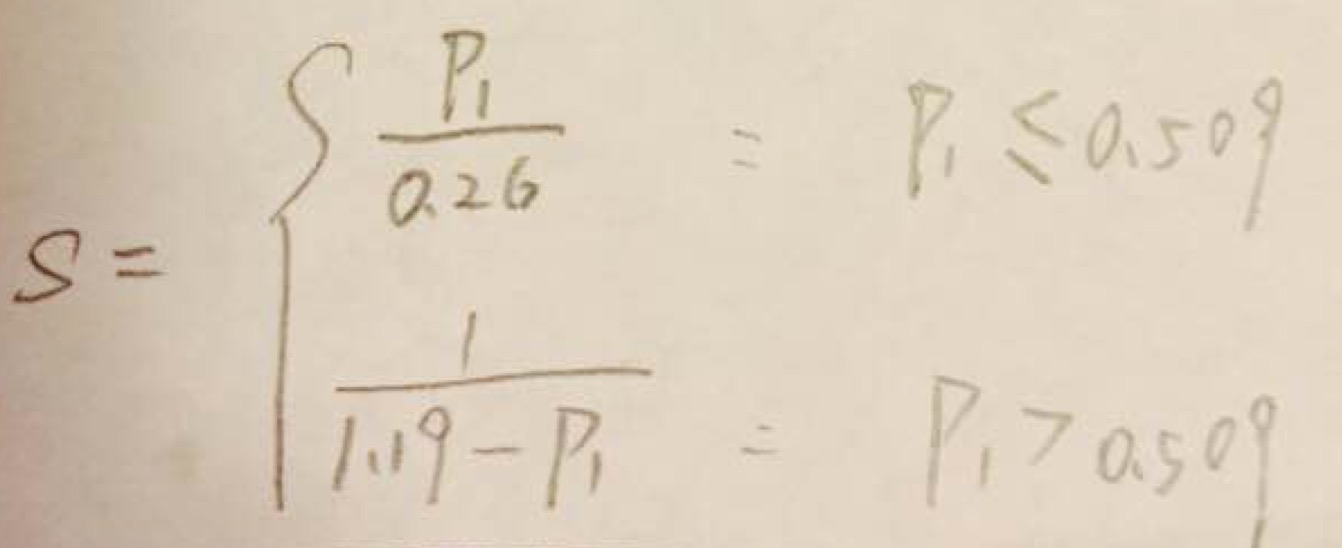 S = { P₁/0.26 = P₁ ≤ 0.509
1/(1.19 - P₁) = P₁ > 0.509